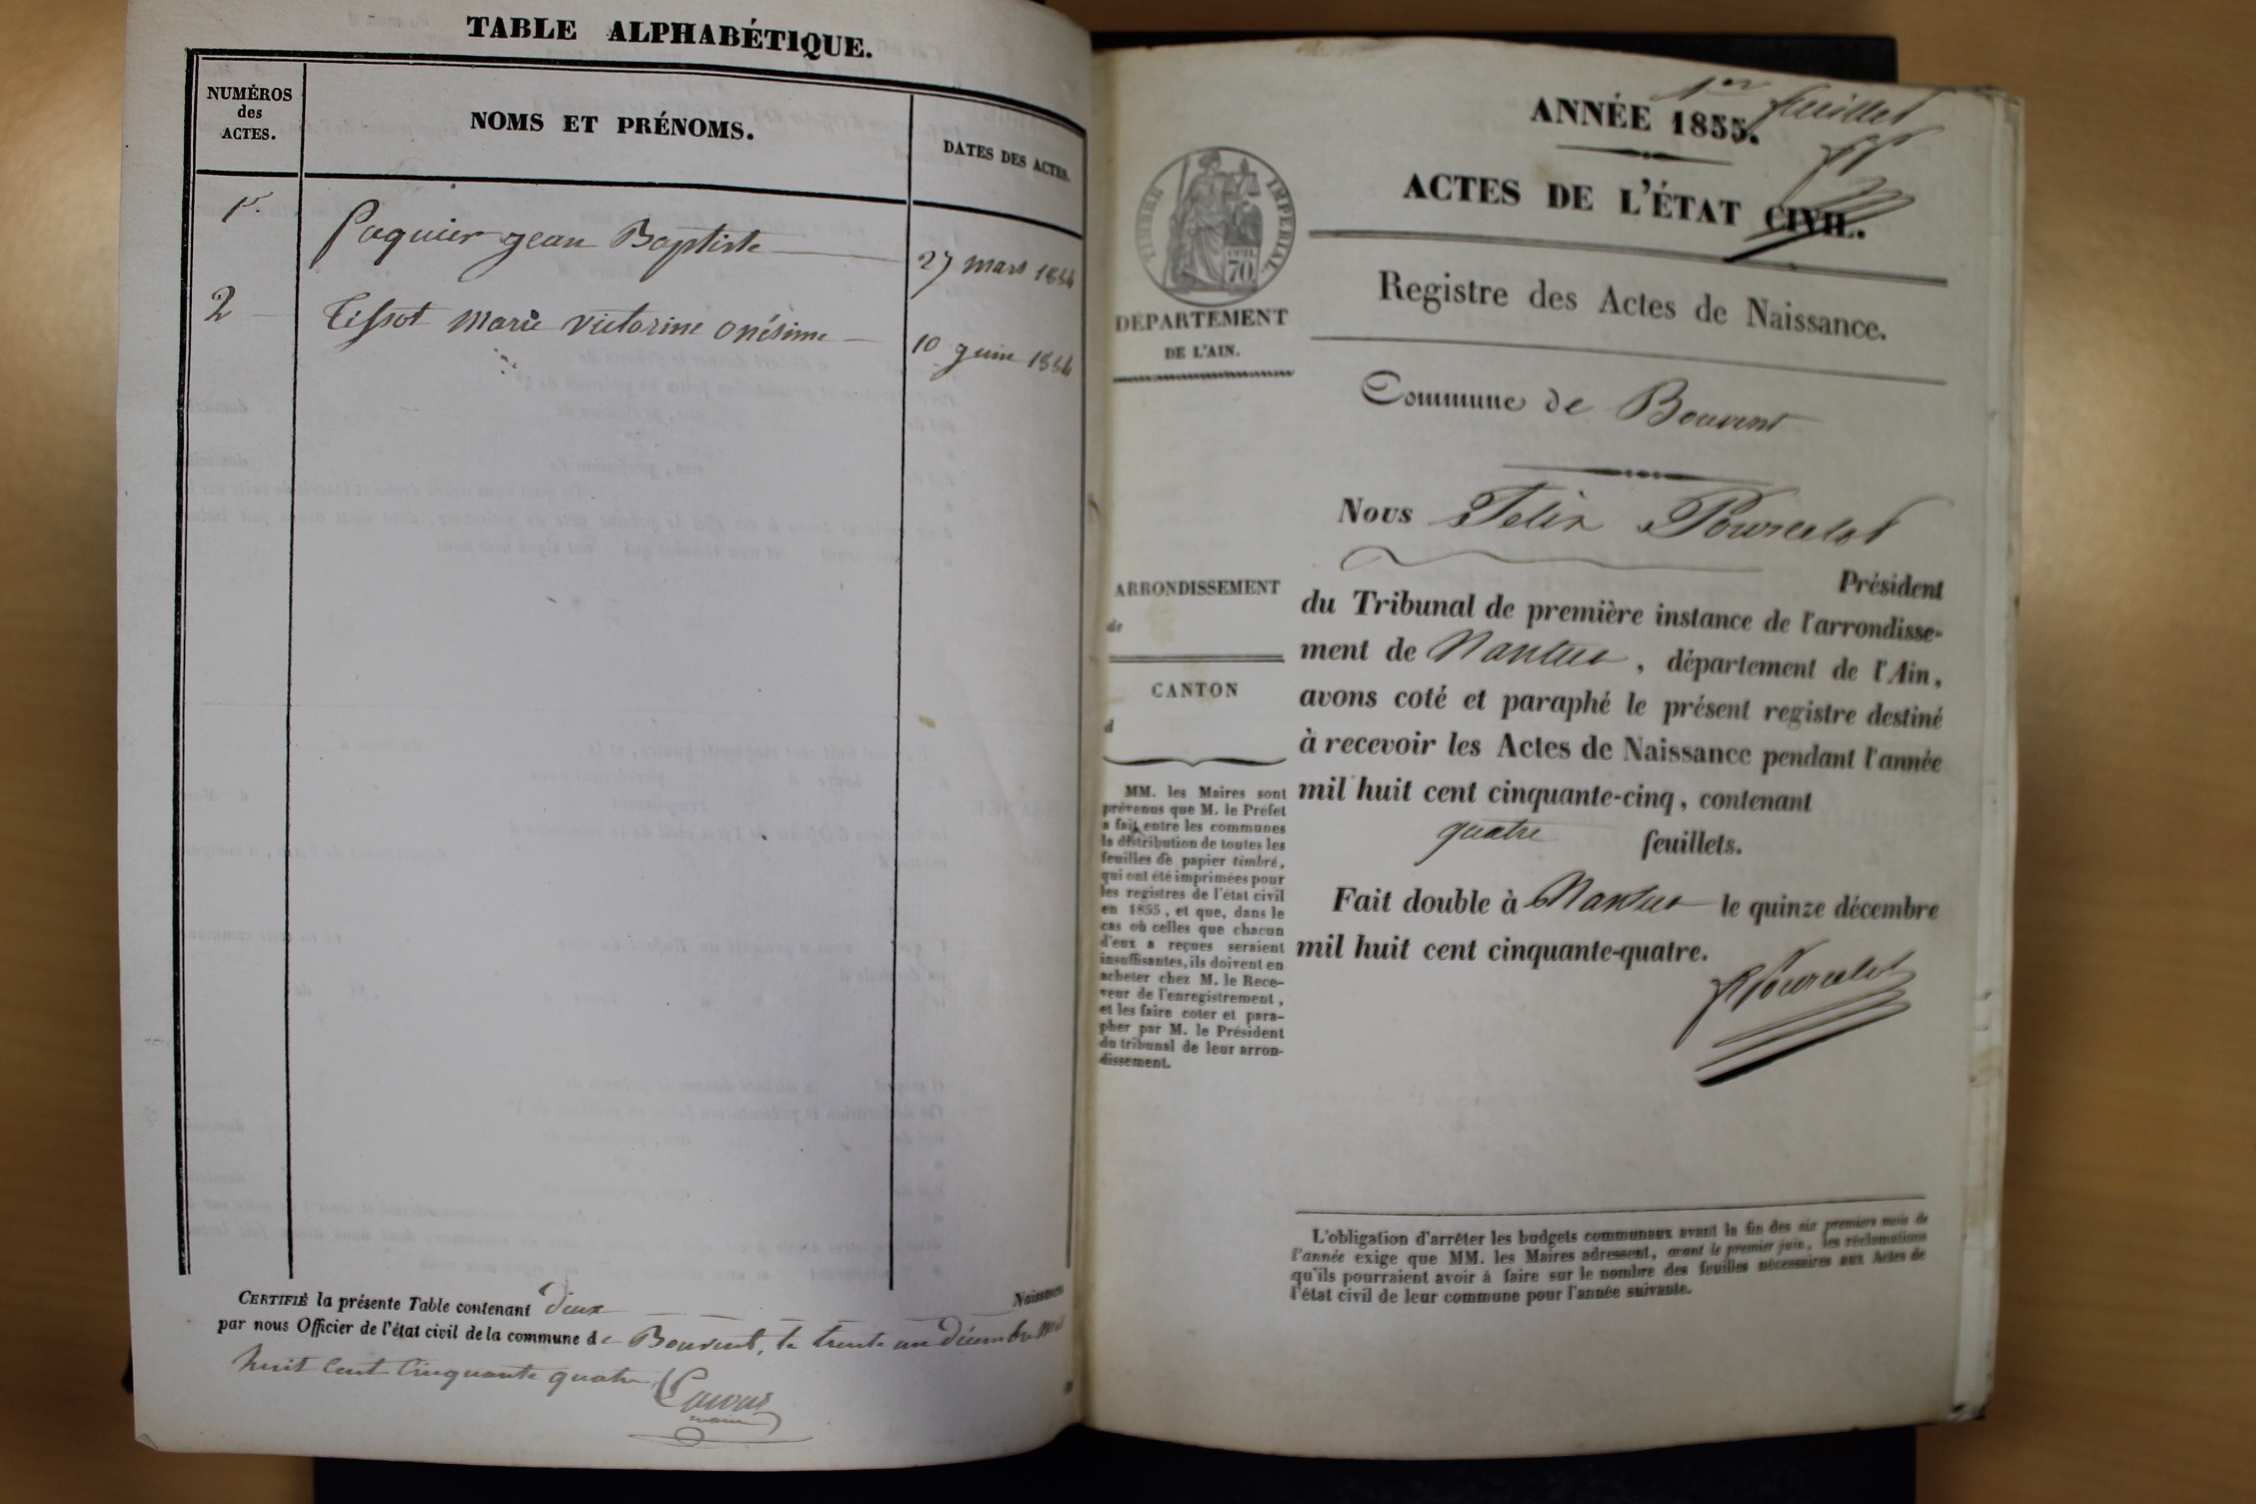 TABLE ALPHABÉTIQUE.
NUMÉROS
des
ACTES.
NOMS ET PRÉNOMS.
DATES DES ACTES.
1er
Paquier jean Baptiste
27 mars 1854
2
Tissot marie victorine onésime
10 juin 1854
CERTIFIÉ la présente Table contenant deux Naissances
par nous Officier de l'état civil de la commune de Bouvent, le trente un Décembre mil
huit cent cinquante quatre
maire
1er feuillet
ANNÉE 1855.
ACTES DE L'ÉTAT CIVIL.
TIMBRE IMPERIAL
70
DÉPARTEMENT
DE L'AIN.
Registre des Actes de Naissance.
Commune de Bouvent
Nous Felix Pourcelot
Président
ARRONDISSEMENT
de
CANTON
d
du Tribunal de première instance de l'arrondisse-
ment de Nantua, département de l'Ain,
avons coté et paraphé le présent registre destiné
à recevoir les Actes de Naissance pendant l'année
mil huit cent cinquante-cinq, contenant
quatre feuillets.
Fait double à Nantua le quinze décembre
mil huit cent cinquante-quatre.
FPourcelot
MM. les Maires sont
prévenus que M. le Préfet
a fait entre les communes
la distribution de toutes les
feuilles de papier timbré,
qui ont été imprimées pour
les registres de l'état civil
en 1855, et que, dans le
cas où celles que chacun
d'eux a reçues seraient
insuffisantes, ils doivent en
acheter chez M. le Rece-
veur de l'enregistrement,
et les faire coter et para-
pher par M. le Président
du tribunal de leur arron-
dissement.
L'obligation d'arrêter les budgets communaux avant la fin des six premiers mois de
l'année exige que MM. les Maires adressent, avant le premier juin, les réclamations
qu'ils pourraient avoir à faire sur le nombre des feuilles nécessaires aux Actes de
l'état civil de leur commune pour l'année suivante.